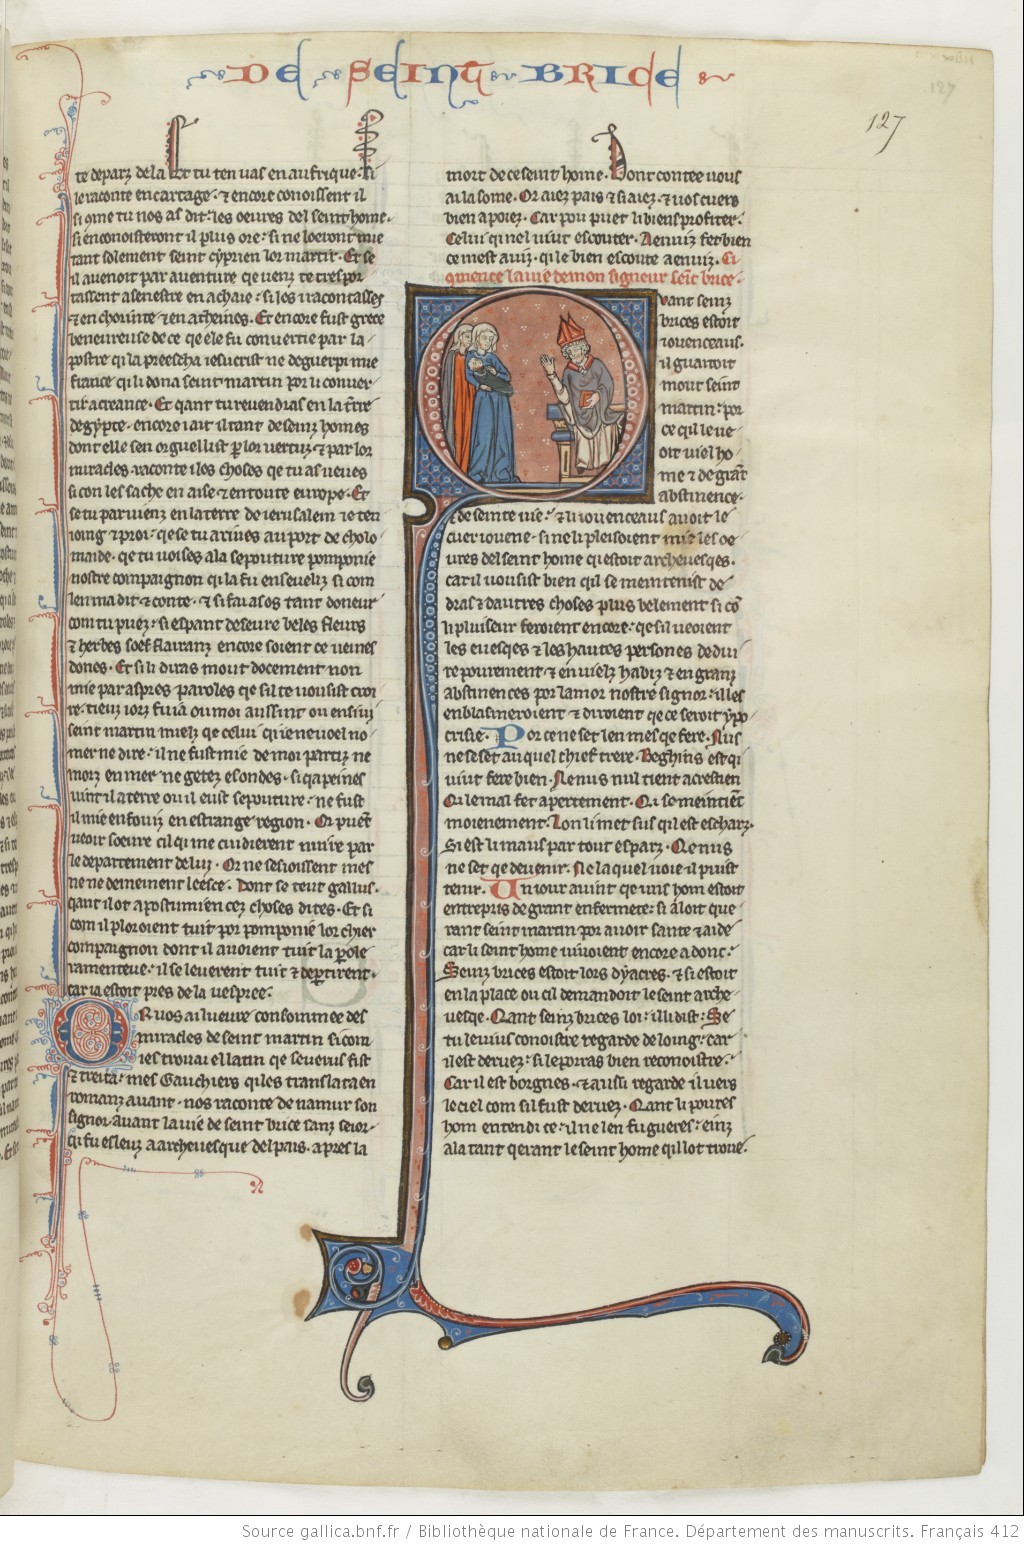 DE SEINT BRICE
127
127
te deparz de la. Et tu ten vas en aufrique. si
le raconte en cartage. & encore conoissent il
si ome tu nos as dit. les oeures del seint home.
si enconoisteront il plus ore. si ne loeront mie
tant solement seint cyprien lor martir. Et se
il auenoit par auenture que uenz te trespor
tassent a senestre en achaie. si les i racontasses
& en chorinte & en athenes. Et encore fust grece
beneureuse de ce que ele fu conuertie par la
postre qi la preescha iesucrist ne deguerpi mie
france qi li dona seint martin por li conuer
tir a creance. Et qant tu reuendras en la t're
degypte. encore i ait il tant de seinz homes
dont elle sen orguellist p lor uertuz & par lor
miracles. raconte i les choses qe tu as ueues
si con les sache en aise & en toute europe. Et
se tu paruienz en la terre de ierusalem ie ten
ioing & proi. qe se tu ariues au port de cholo
maide. qe tu uoises a la sepouture pomponie
nostre compaignon qi la fu enseueliz si com
len ma dit & conte. & si fai as os tant doneur
com tu puez. si espant deseure beles fleurs
& herbes soef flairanz encore soient ce ueines
dones. Et si li diras mout docement non
mie par aspres paroles qe sil te uousist croi
re. tieux iorz fu ia ou moi aussint ou ensiui
seint martin mielz qe celui qi ie ne uoel no
mer ne dire. il ne fust mie de moi partiz ne
morz en mer ne getez es ondes. si qa peines
uint il a terre ou il eust sepouture. ne fust
il mie enfouiz en estrange region. Or puet
ueoir soeure cil qi me cuidierent nuire par
le departement de lui. Or ne sesioissent mes
ne ne demeinent leesce. Dont se teut gallus.
qant il ot a postumien cez choses dites. Et si
com il ploroient tuit por pomponie lor chier
compaignon dont il auoient tuit la pole
ramenteue. il se leuerent tuit & deptirent.
car ia estoit pres de la uespree.
Or uos ai l'uevre consommee des
miracles de seint martin si com
ies trouai el latin qe seuerus fist
& treita. mes Gauchiers qi les translata en
romanz auant. nos raconte de namur son
signor. auant la uie de seint brice sanz seior.
qi fu esleuz a archeuesque del pais. apres la
mort de ce seint home. Dont contee uous
ai la some. Or aiez pais & si aiez. & uos cuers
bien apoiez. Car pou puet li biens profiter.
Celui qi nel uiut escouter. A enuiz fet bien
ce mest auiz. qi le bien escoute a enuiz. Ci
qmence la uie de mon signeur seit brice.
vant seinz
brices estoit
iouenceaus.
il guartoit
mout seint
martin. por
ce qil le ue
oit uiel ho
me & de grat
abstinence.
& de seinte uie. & li iouenceaus auoit le
cuer iouene. si ne li pleisoient mie les oe
ures del seint home qi estoit archeuesqes.
car il uousist bien qil se meintenist de
dras & dautres choses plus belement si co
li pluiseur feroient encore. qe sil ueoient
les euesqes & les hautes persones deduí
re pourement. & en uielz habiz & en granz
abstinences por lamor nostre signor. il les
en blasmeroient & diroient qe ce seroit ypo
crisie. Por ce ne set len mes qe fere. Nus
ne se set au quel chief trere. Beghins est qi
uiut fere bien. Ne nus nul tient a crestien
Qi le mal fet apertement. Qi se meintiet
moienement. Lon li met sus qil est escharz.
Si est li maus par tout esparz. Ne nus
ne set qe deuenir. Ne la quel uoie il puist
tenir. Un iour auint qe uns hom estoit
entrepris de grant enfermete. si aloit que
rant seint martin por auoir sante & aide
car li seint home uiuoient encore a donc.
Seinz brices estoit lors dyacres. & si estoit
en la place ou cil demandoit le seint arche
uesqe. Qant seinz brices loi. il li dist. Se
tu le uius conoistre regarde de loing. car
il est deruez. si le porras bien reconoistre.
Car il est borgnes. & aussi regarde il uers
le ciel com sil fust deruez. Qant li poures
hom entendi ce. il ne len fu gueres. einz
ala tant qerant le seint home qil lot troue.
Source gallica.bnf.fr / Bibliothèque nationale de France. Département des manuscrits. Français 412